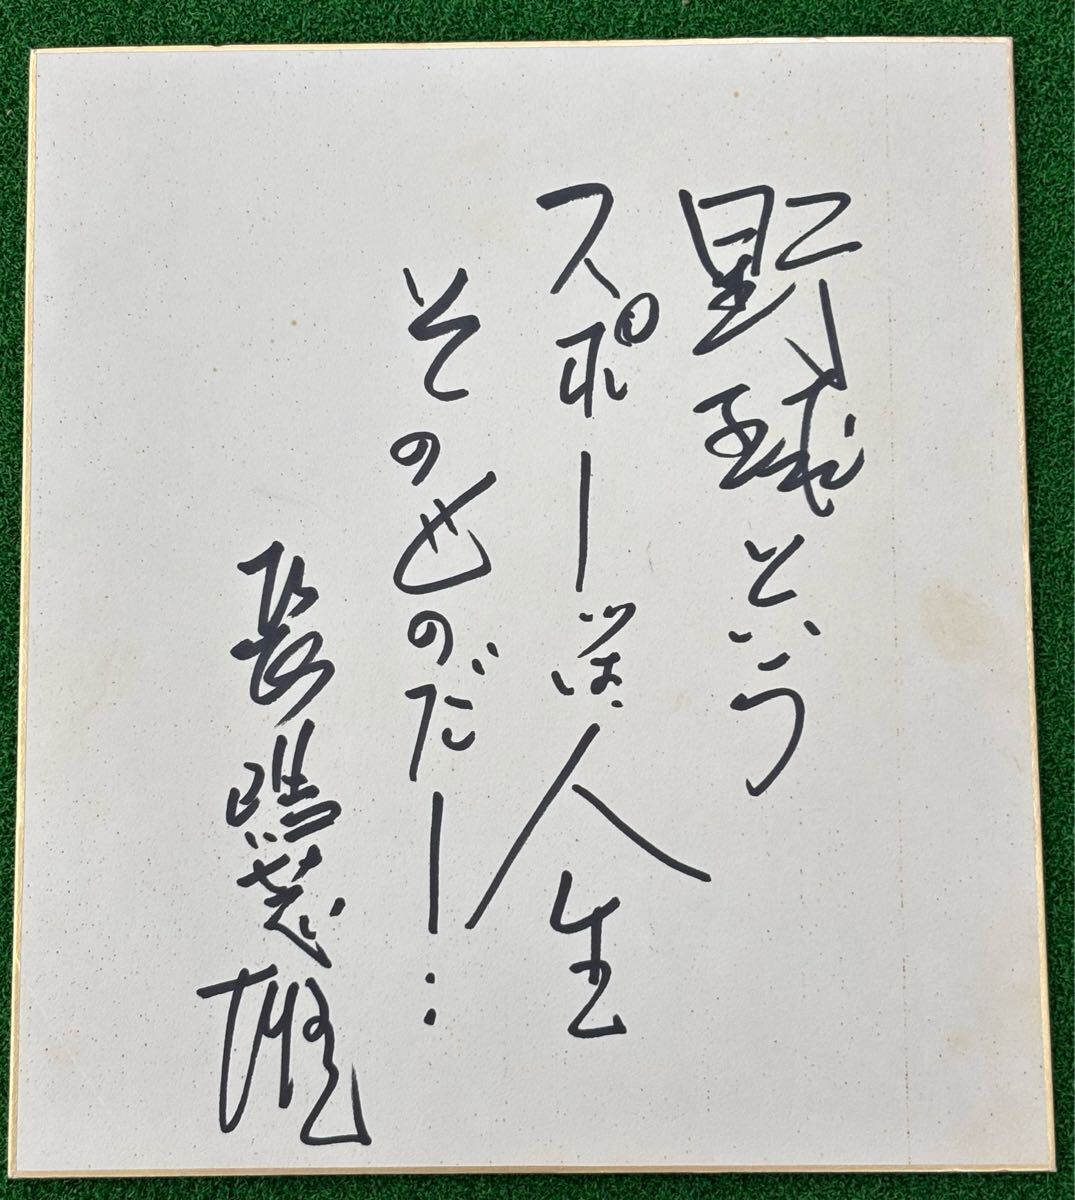 野球という
スポーツは人生
そのものだ！…
長嶋茂雄